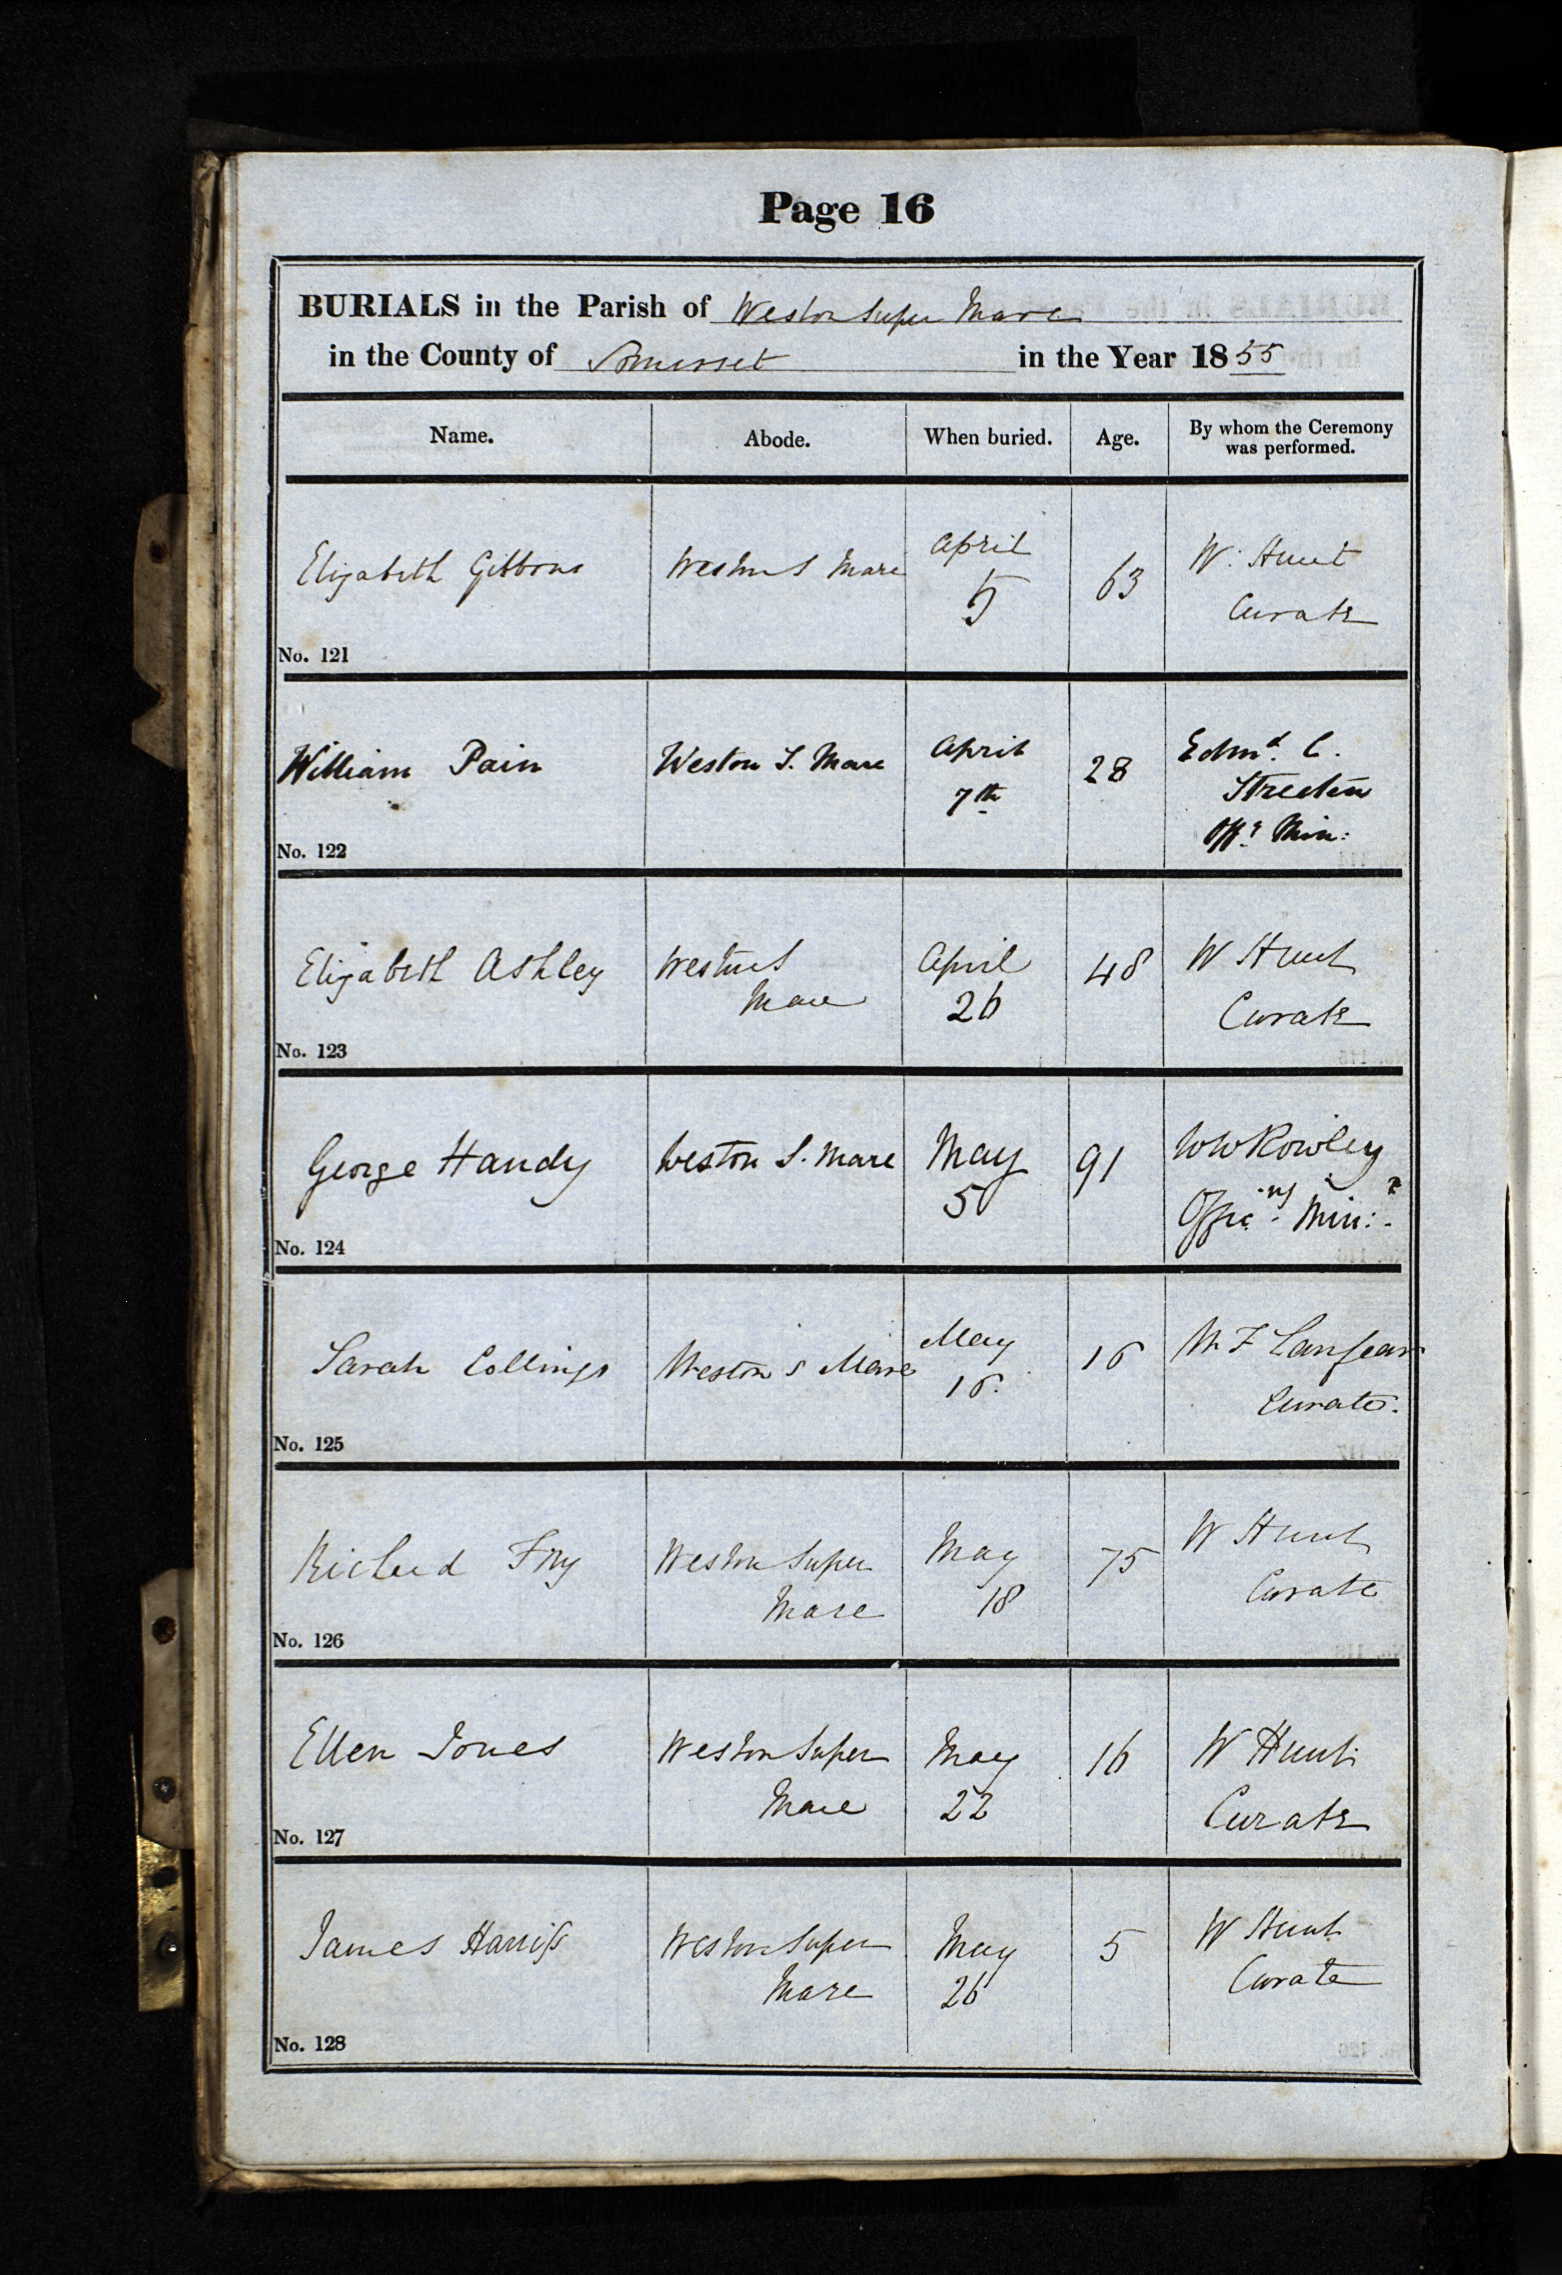 Page 16
BURIALS in the Parish of Weston Super Mare
in the County of Somerset in the Year 1855
Name. Abode. When buried. Age. By whom the Ceremony was performed.
Elizabeth Gibbons Weston S Mare April 5 63 W. Hunt Curate
No. 121
William Pain Weston S. Mare April 7th 28 Edmd. C. Streeten Offg Min:
No. 122
Elizabeth Ashley Weston S Mare April 26 48 W Hunt Curate
No. 123
George Handy Weston S. Mare May 5 91 W W Rowley Officg Minr.
No. 124
Sarah Collings Weston S Mare May 16. 16 Curate.
No. 125
Richard Fry Weston Super Mare May 18 75 W Hunt Curate
No. 126
Ellen Jones Weston Super Mare May 22 16 W Hunt Curate
No. 127
James Harriss Weston Super Mare May 26 5 W Hunt Curate
No. 128